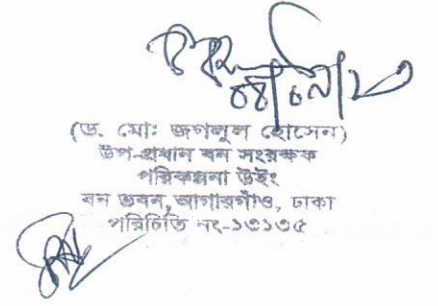 (ড. মোঃ জগলুল হোসেন)
উপ-প্রধান বন সংরক্ষক
পরিকল্পনা উইং
বন ভবন, আগারগাঁও, ঢাকা
পরিচিতি নং-১৩১৩৫